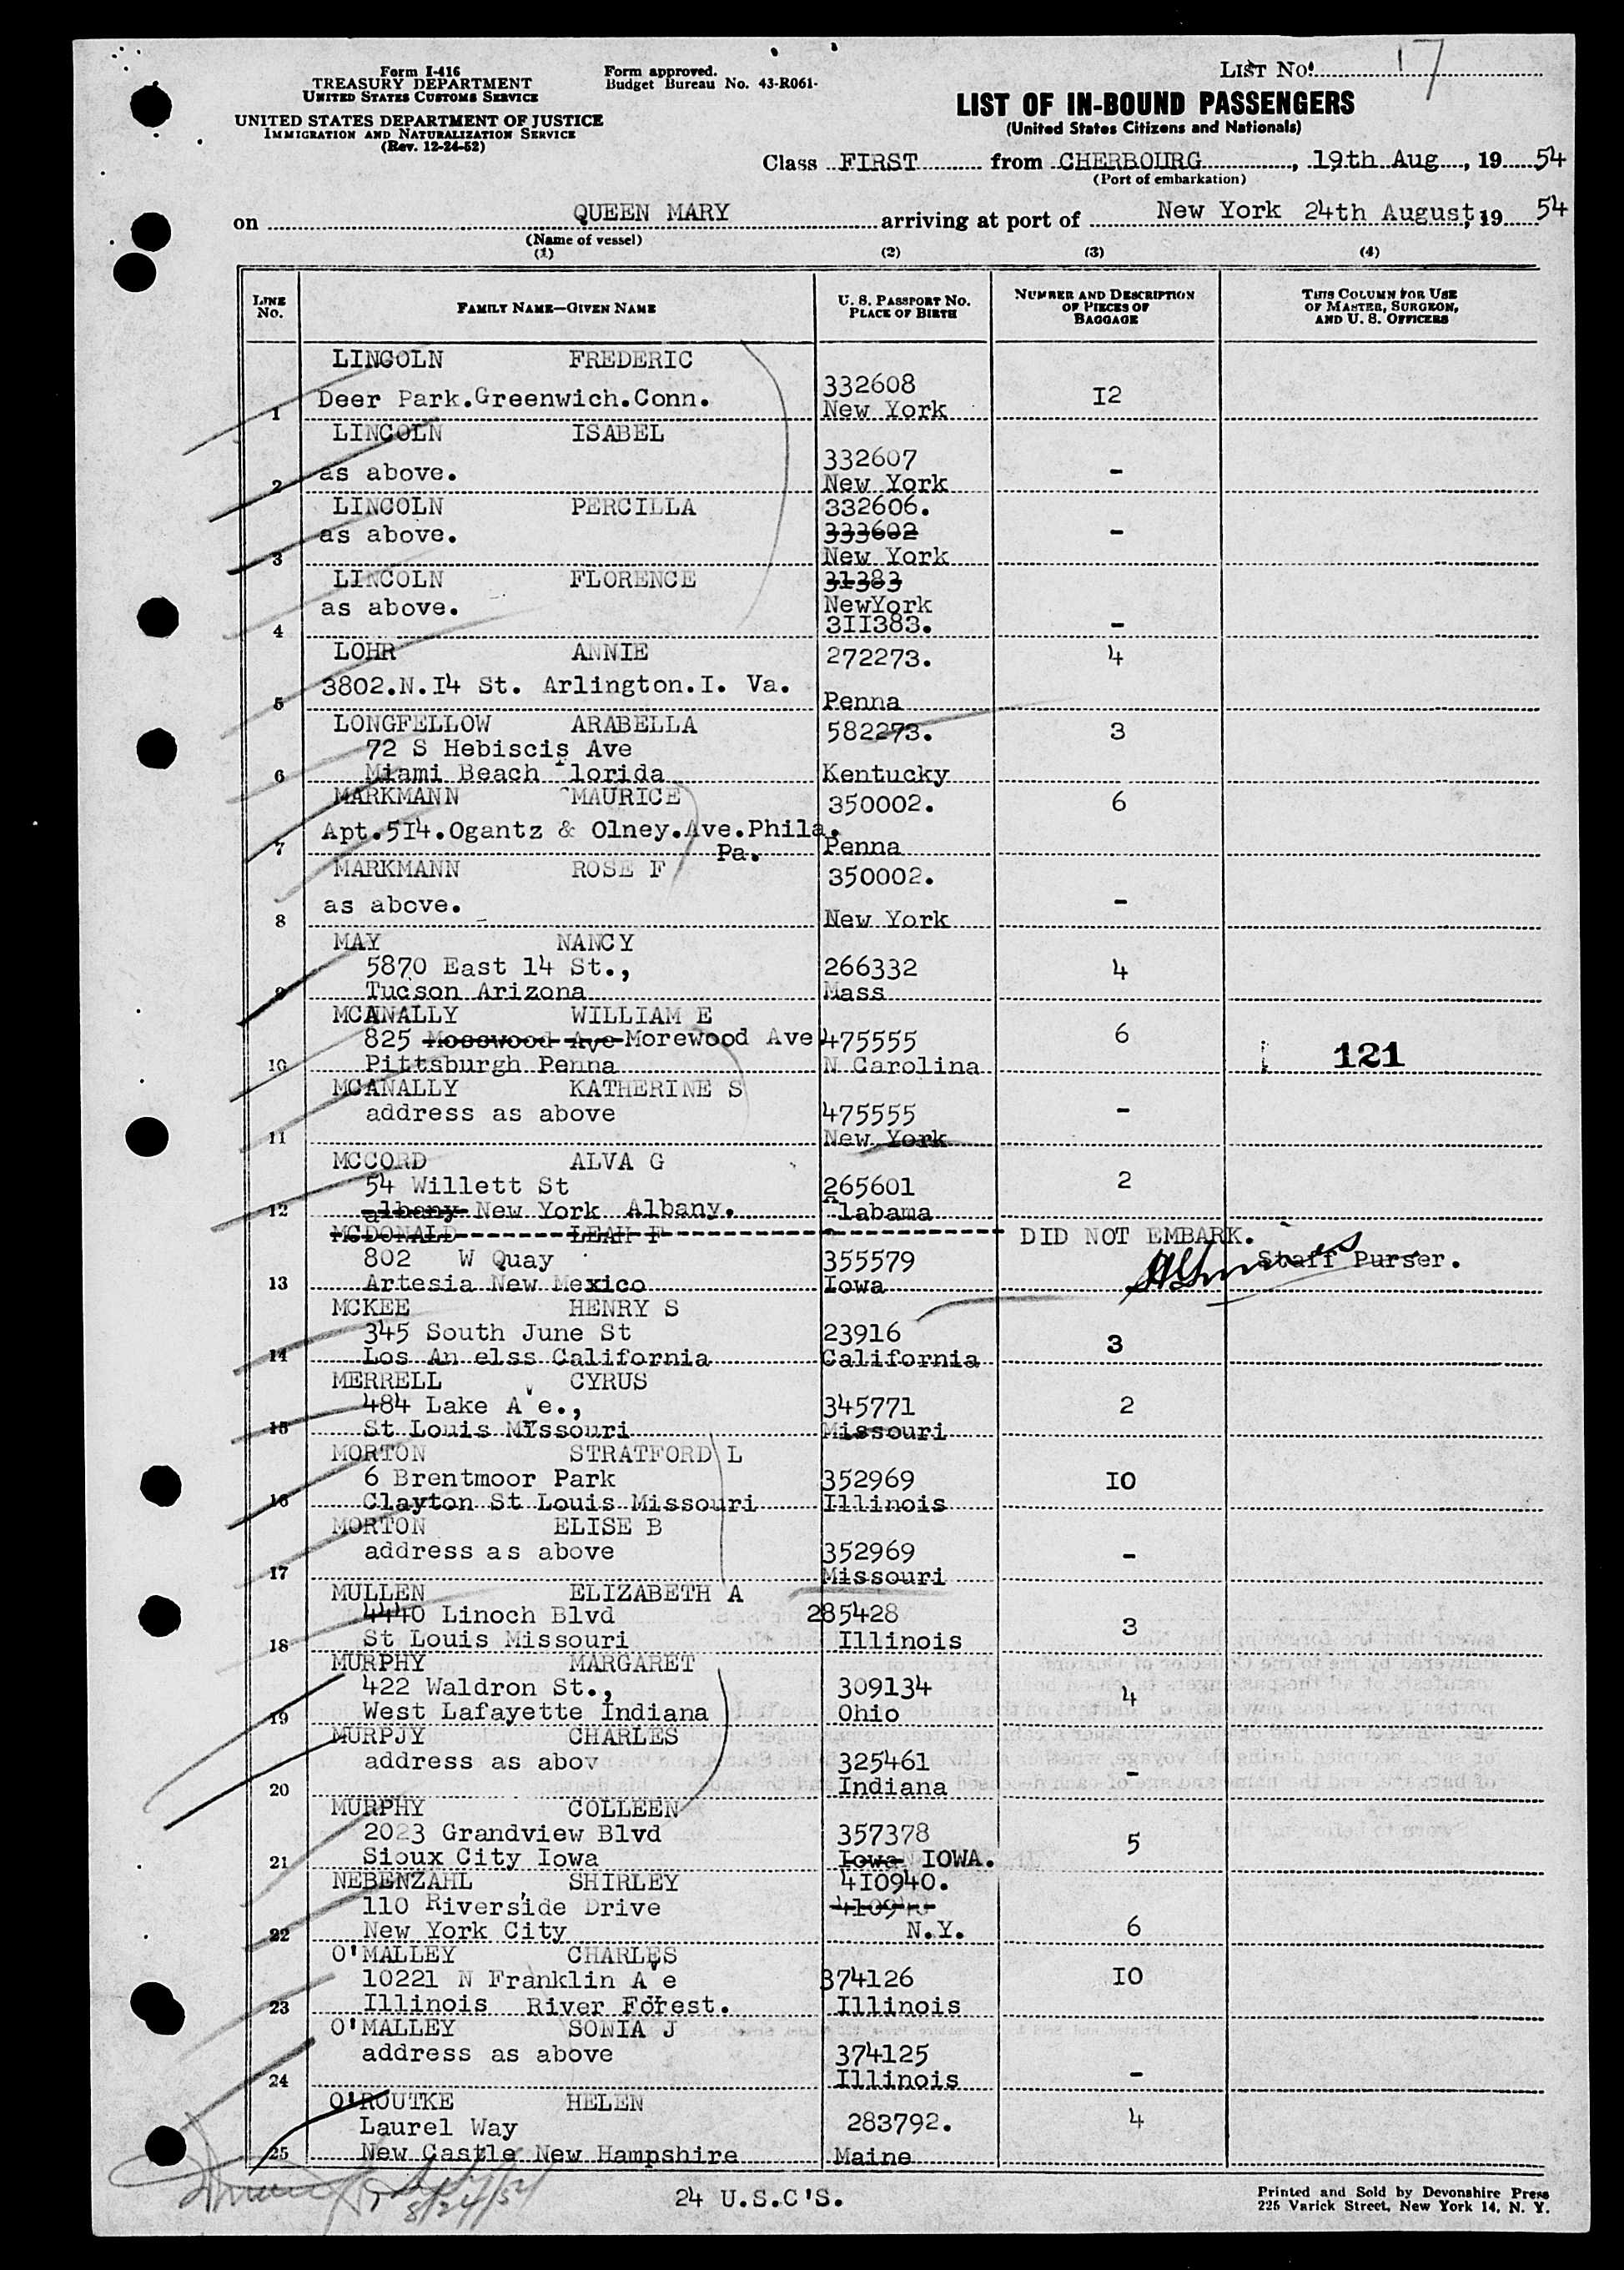 LIST No. 17
Form I-416
TREASURY DEPARTMENT
UNITED STATES CUSTOMS SERVICE
UNITED STATES DEPARTMENT OF JUSTICE
IMMIGRATION AND NATURALIZATION SERVICE
(Rev. 12-24-52)
Form approved.
Budget Bureau No. 43-R061-
LIST OF IN-BOUND PASSENGERS
(United States Citizens and Nationals)
Class FIRST from CHERBOURG, 19th Aug, 19 54
(Port of embarkation)
on QUEEN MARY arriving at port of New York 24th August, 19 54
(Name of vessel)
(1) (2) (3) (4)
LINE No. FAMILY NAME—GIVEN NAME U. S. PASSPORT NO. PLACE OF BIRTH NUMBER AND DESCRIPTION OF PIECES OF BAGGAGE THIS COLUMN FOR USE OF MASTER, SURGEON, AND U. S. OFFICERS
LINCOLN FREDERIC
332608
Deer Park.Greenwich.Conn. I2
1 New York
LINCOLN ISABEL
332607
as above. -
2 New York
LINCOLN PERCILLA 332606.
as above. 333602 -
3 New York
LINCOLN FLORENCE 31383
as above. NewYork
4 3II383. -
LOHR ANNIE 272273. 4
3802.N.I4 St. Arlington.I. Va.
5 Penna
LONGFELLOW ARABELLA 582273. 3
72 S Hebiscis Ave
6 Miami Beach Florida Kentucky
MARKMANN MAURICE 350002. 6
Apt.5I4.Ogantz & Olney.Ave.Phila.
7 Pa. Penna
MARKMANN ROSE F 350002.
as above. -
8 New York
MAY NANCY
5870 East 14 St., 266332 4
9 Tucson Arizona Mass
MCANALLY WILLIAM E
825 Mosswood Ave Morewood Ave 475555 6
10 Pittsburgh Penna N Carolina 121
MCANALLY KATHERINE S
address as above 475555 -
11 New York
MCCORD ALVA G
54 Willett St 265601 2
12 albany New York Albany. Alabama
MCDONALD LEAH F DID NOT EMBARK.
802 W Quay 355579 Staff Purser.
13 Artesia New Mexico Iowa
MCKEE HENRY S
345 South June St 23916 3
14 Los An elss California California
MERRELL CYRUS
484 Lake Ave., 345771 2
15 St Louis Missouri Missouri
MORTON STRATFORD L
6 Brentmoor Park 352969 IO
16 Clayton St Louis Missouri Illinois
MORTON ELISE B
address as above 352969 -
17 Missouri
MULLEN ELIZABETH A
4440 Linoch Blvd 285428 3
18 St Louis Missouri Illinois
MURPHY MARGARET
422 Waldron St., 309134 4
19 West Lafayette Indiana Ohio
MURPJY CHARLES
address as abov 325461 -
20 Indiana
MURPHY COLLEEN
2023 Grandview Blvd 357378 5
21 Sioux City Iowa Iowa IOWA.
NEBENZAHL SHIRLEY 4I0940.
110 Riverside Drive 410940
22 New York City N.Y. 6
O'MALLEY CHARLES
10221 N Franklin Ave 374126 IO
23 Illinois River Forest. Illinois
O'MALLEY SONIA J
address as above 374125
24 Illinois -
O'ROUTKE HELEN
Laurel Way 283792. 4
25 New Castle New Hampshire Maine
8/24/54
24 U.S.C'S.
Printed and Sold by Devonshire Press
225 Varick Street, New York 14, N. Y.